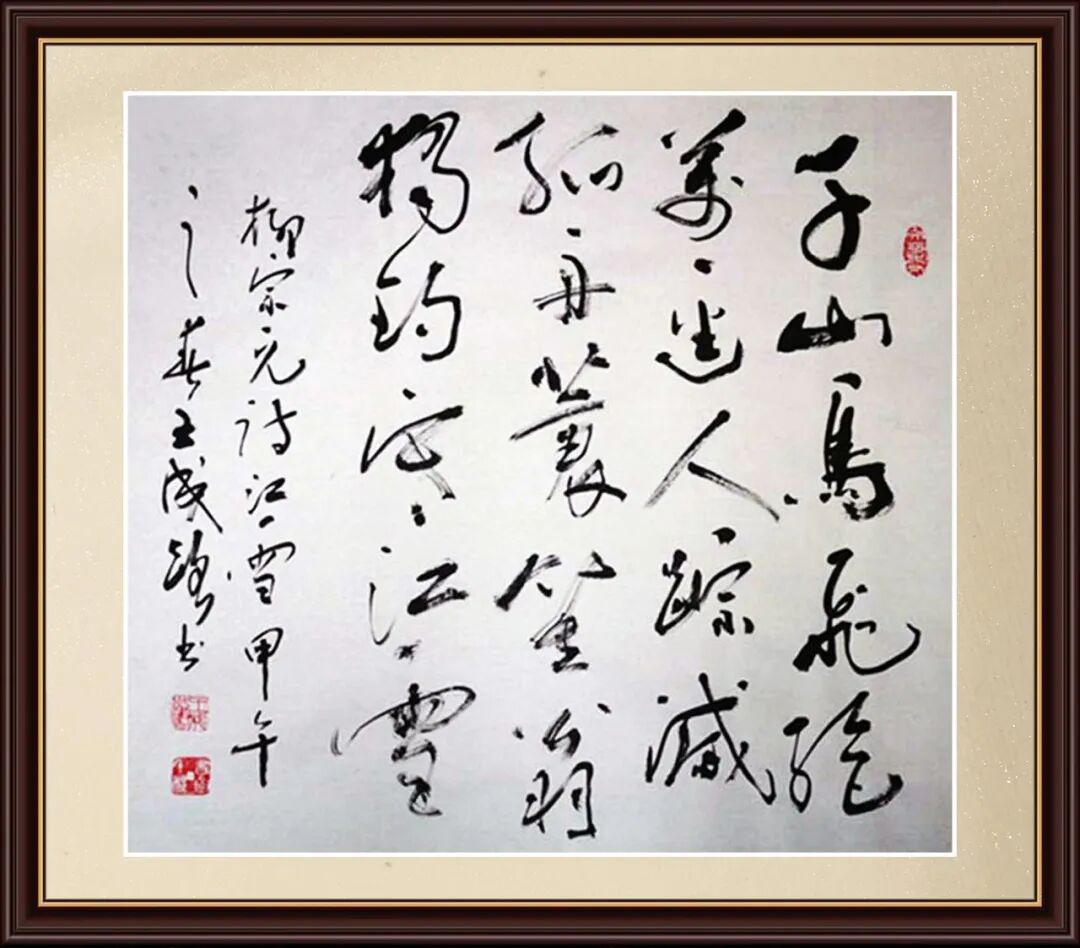 千山鳥飛絶
萬逕人踪滅
孤舟蓑笠翁
獨釣寒江雪
柳宗元詩江雪甲午
之春王成书